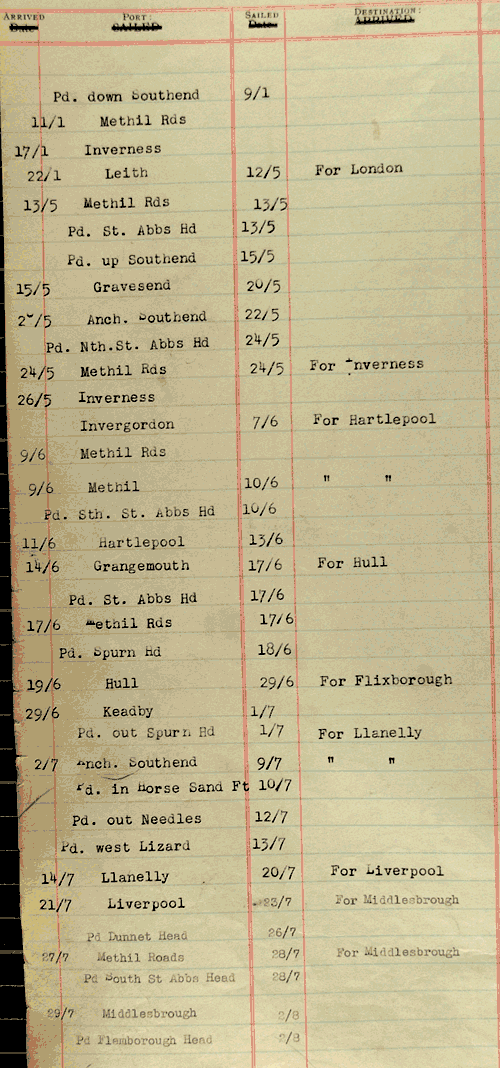 ARRIVED PORT: SAILED DESTINATION:
Date SAILED Date ARRIVED
Pd. down Southend 9/1
11/1 Methil Rds
17/1 Inverness
22/1 Leith 12/5 For London
13/5 Methil Rds 13/5
Pd. St. Abbs Hd 13/5
Pd. up Southend 15/5
15/5 Gravesend 20/5
Anch. Southend 22/5
Pd. Nth.St. Abbs Hd 24/5
24/5 Methil Rds 24/5 For Inverness
26/5 Inverness
Invergordon 7/6 For Hartlepool
9/6 Methil Rds
9/6 Methil 10/6 " "
Pd. Sth. St. Abbs Hd 10/6
11/6 Hartlepool 13/6
14/6 Grangemouth 17/6 For Hull
Pd. St. Abbs Hd 17/6
17/6 Methil Rds 17/6
Pd. Spurn Hd 18/6
19/6 Hull 29/6 For Flixborough
29/6 Keadby 1/7
Pd. out Spurn Hd 1/7 For Llanelly
2/7 Anch. Southend 9/7 " "
Pd. in Horse Sand Ft 10/7
Pd. out Needles 12/7
Pd. west Lizard 13/7
14/7 Llanelly 20/7 For Liverpool
21/7 Liverpool 23/7 For Middlesbrough
Pd Dunnet Head 26/7
27/7 Methil Roads 28/7 For Middlesbrough
Pd South St Abbs Head 28/7
29/7 Middlesbrough 2/8
Pd Flamborough Head 2/8